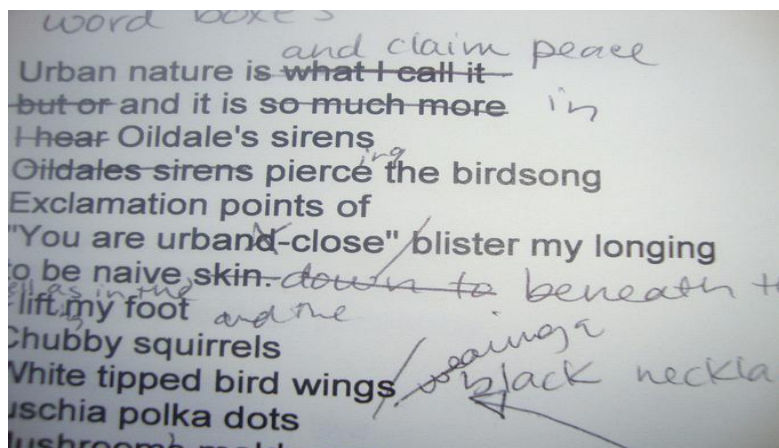 word boxes
and claim peace
Urban nature is what I call it
but or and it is so much more in
I hear Oildale's sirens
ing
Oildales sirens pierce the birdsong
Exclamation points of
"You are urband-close" blister my longing
to be naive skin. down to beneath
as in the
lift my foot and the
Chubby squirrels
wearing a
White tipped bird wings black neckla
uschia polka dots